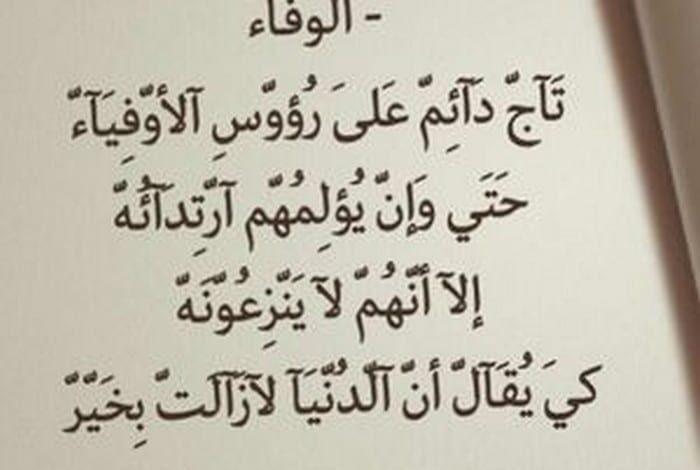 - الوفاء
تَآجّ دَآئِمّ عَلىَ رُؤوّسِ آلأوّفِيَآءّ
حَتَي وَإنّ يُؤلِمهُمّ آرّتِدآئُهّ
إلآ أنّهُمّ لآ يَنّزِعوُنَهّ
كيَ يُقَآلّ أنّ آلّدُنّيَآ لآزَآلَتّ بِخَيَرّ